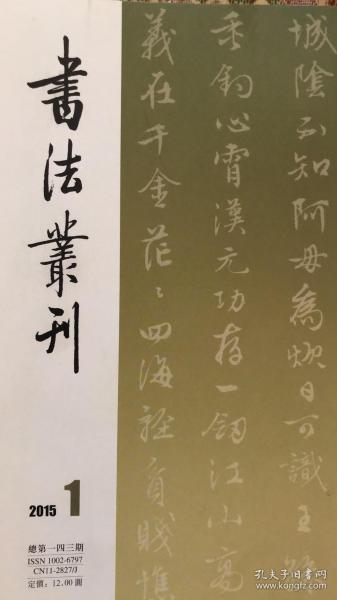 書法叢刊
城陰不知阿母為炊日可識王孫
垂釣心霄漢元功存一劍江山高
義在千金茫〻四海貧賤憔
2015 1
總第一四三期
ISSN 1002-6797
CN11-2827/J
定價：12.00圓
孔夫子旧书网